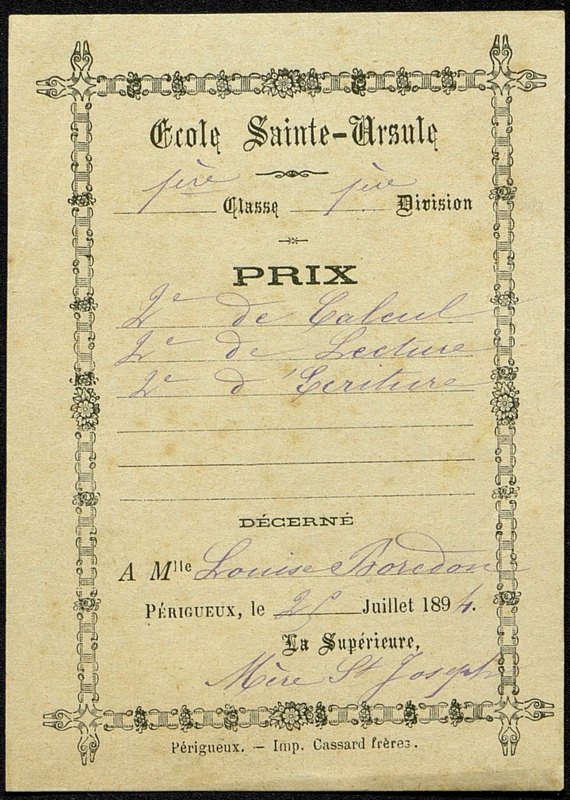 Ecole Sainte-Ursule
1ère Classe 1ère Division
PRIX
2e de Calcul
2e de Lecture
2e d'Ecriture
DÉCERNÉ
A Mlle Louise Boredon
PÉRIGUEUX, le Juillet 1894.
La Supérieure,
Mère St Joseph
Périgueux. — Imp. Cassard frères.